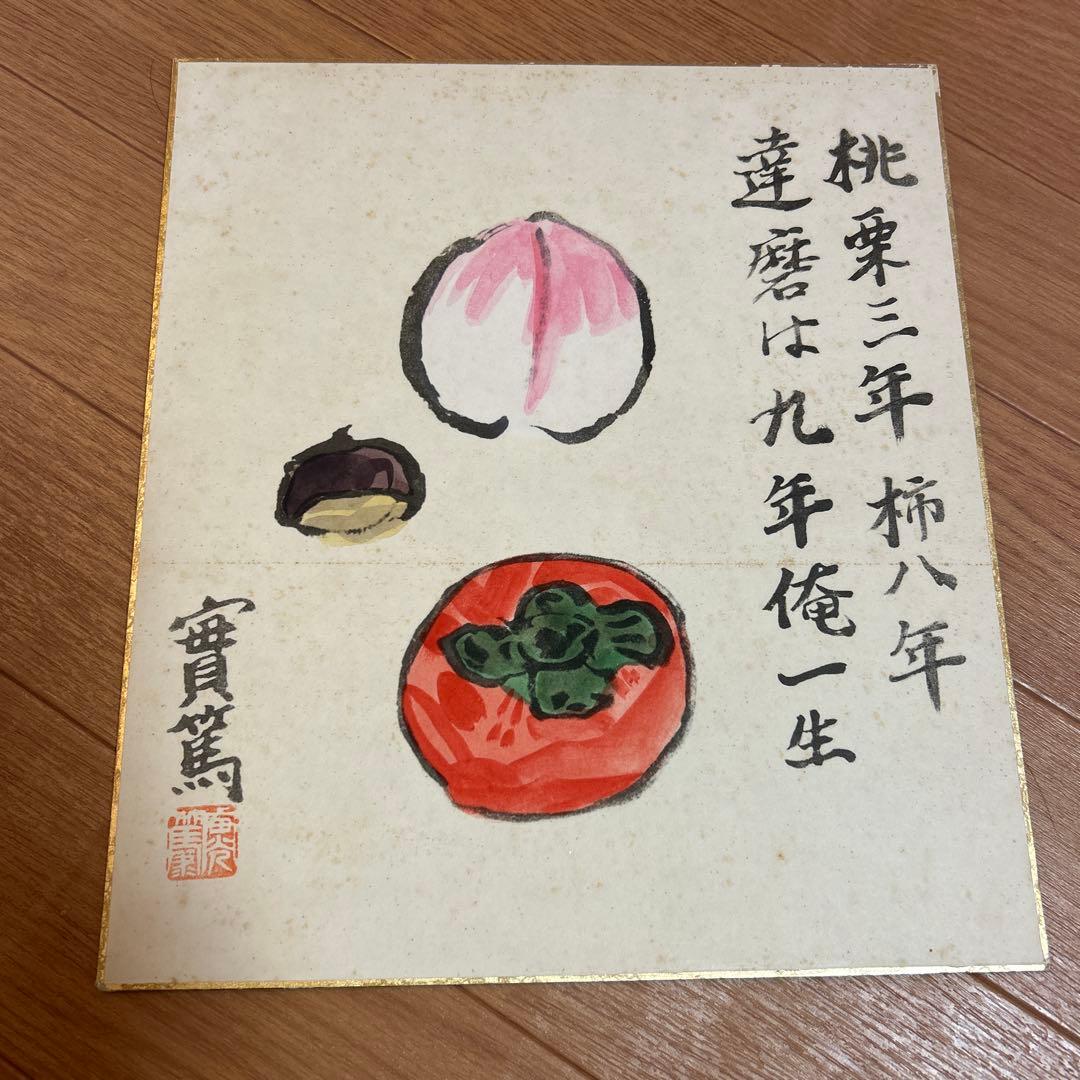 桃栗三年 柿八年
達磨は九年俺一生
實篤